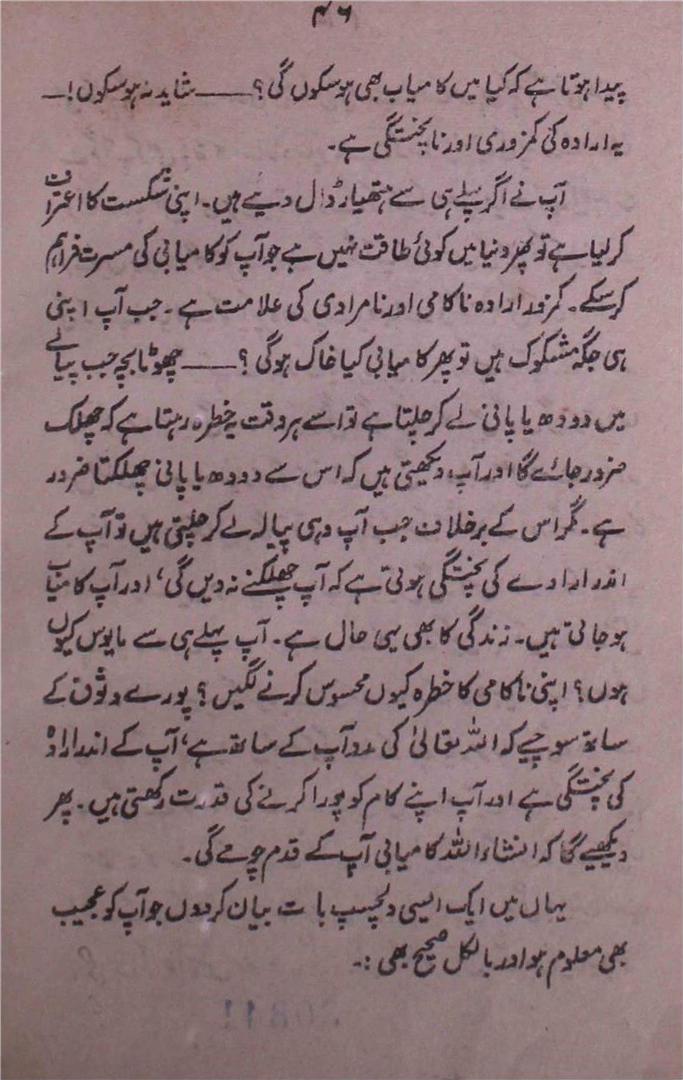 ۴۶
پیدا ہوتا ہے کہ کیا میں کامیاب بھی ہو سکوں گی؟ —— شاید نہ ہو سکوں! —
یہ ارادہ کی کمزوری اور ناپختگی ہے۔
آپ نے اگر پہلے ہی سے ہتھیار ڈال دیے ہیں۔ اپنی شکست کا اعتراف
کر لیا ہے تو پھر دنیا میں کوئی طاقت نہیں ہے جو آپ کو کامیابی کی مسرت فراہم
کر سکے۔ کمزور ارادہ ناکامی اور نامرادی کی علامت ہے۔ جب آپ اپنی
ہی جگہ مشکوک ہیں تو پھر کامیابی کیا خاک ہوگی؟ —— چھوٹا بچہ جب پیالے
میں دودھ یا پانی لے کر چلتا ہے تو اسے ہر وقت یہ خطرہ رہتا ہے کہ چھلک
ضرور جائے گا اور آپ دیکھتی ہیں کہ اس سے دودھ یا پانی چھلکتا ضرور
ہے۔ مگر اس کے برخلاف جب آپ وہی پیالہ لے کر چلتی ہیں تو آپ کے
اندر ارادے کی پختگی ہوتی ہے کہ آپ چھلکنے نہ دیں گی، اور آپ کامیاب
ہو جاتی ہیں۔ زندگی کا بھی یہی حال ہے۔ آپ پہلے ہی سے مایوس کیوں
ہوں؟ اپنی ناکامی کا خطرہ کیوں محسوس کرنے لگیں؟ پورے وثوق کے
ساتھ سوچیے کہ اللہ تعالیٰ کی مدد آپ کے ساتھ ہے، آپ کے اندر ارادہ
کی پختگی ہے اور آپ اپنے کام کو پورا کرنے کی قدرت رکھتی ہیں۔ پھر
دیکھیے گا کہ انشاء اللہ کامیابی آپ کے قدم چومے گی۔
یہاں میں ایک ایسی دلچسپ بات بیان کر دوں جو آپ کو عجیب
بھی معلوم ہو اور بالکل صحیح بھی :۔